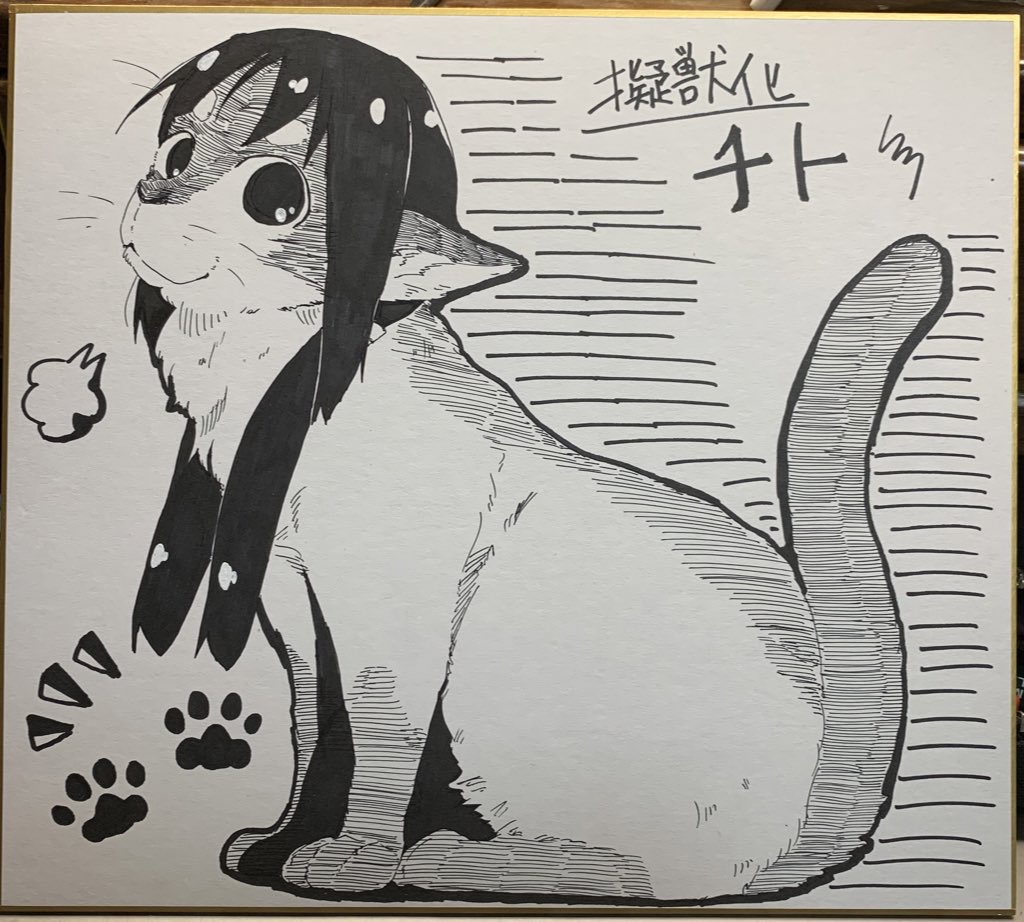 擬獣化
チト